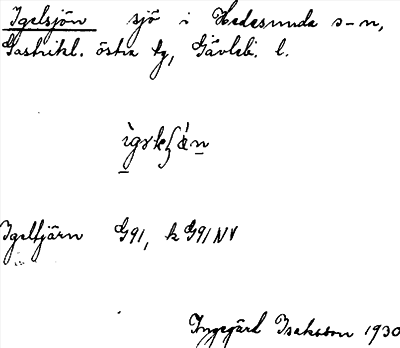 Igelsjön sjö i Hedesunda s-n,
Gästrikl. östra tg, Gävleb. l.
Igeltjärn G91, k G91 NV
Ingegärd Isaksson 1930